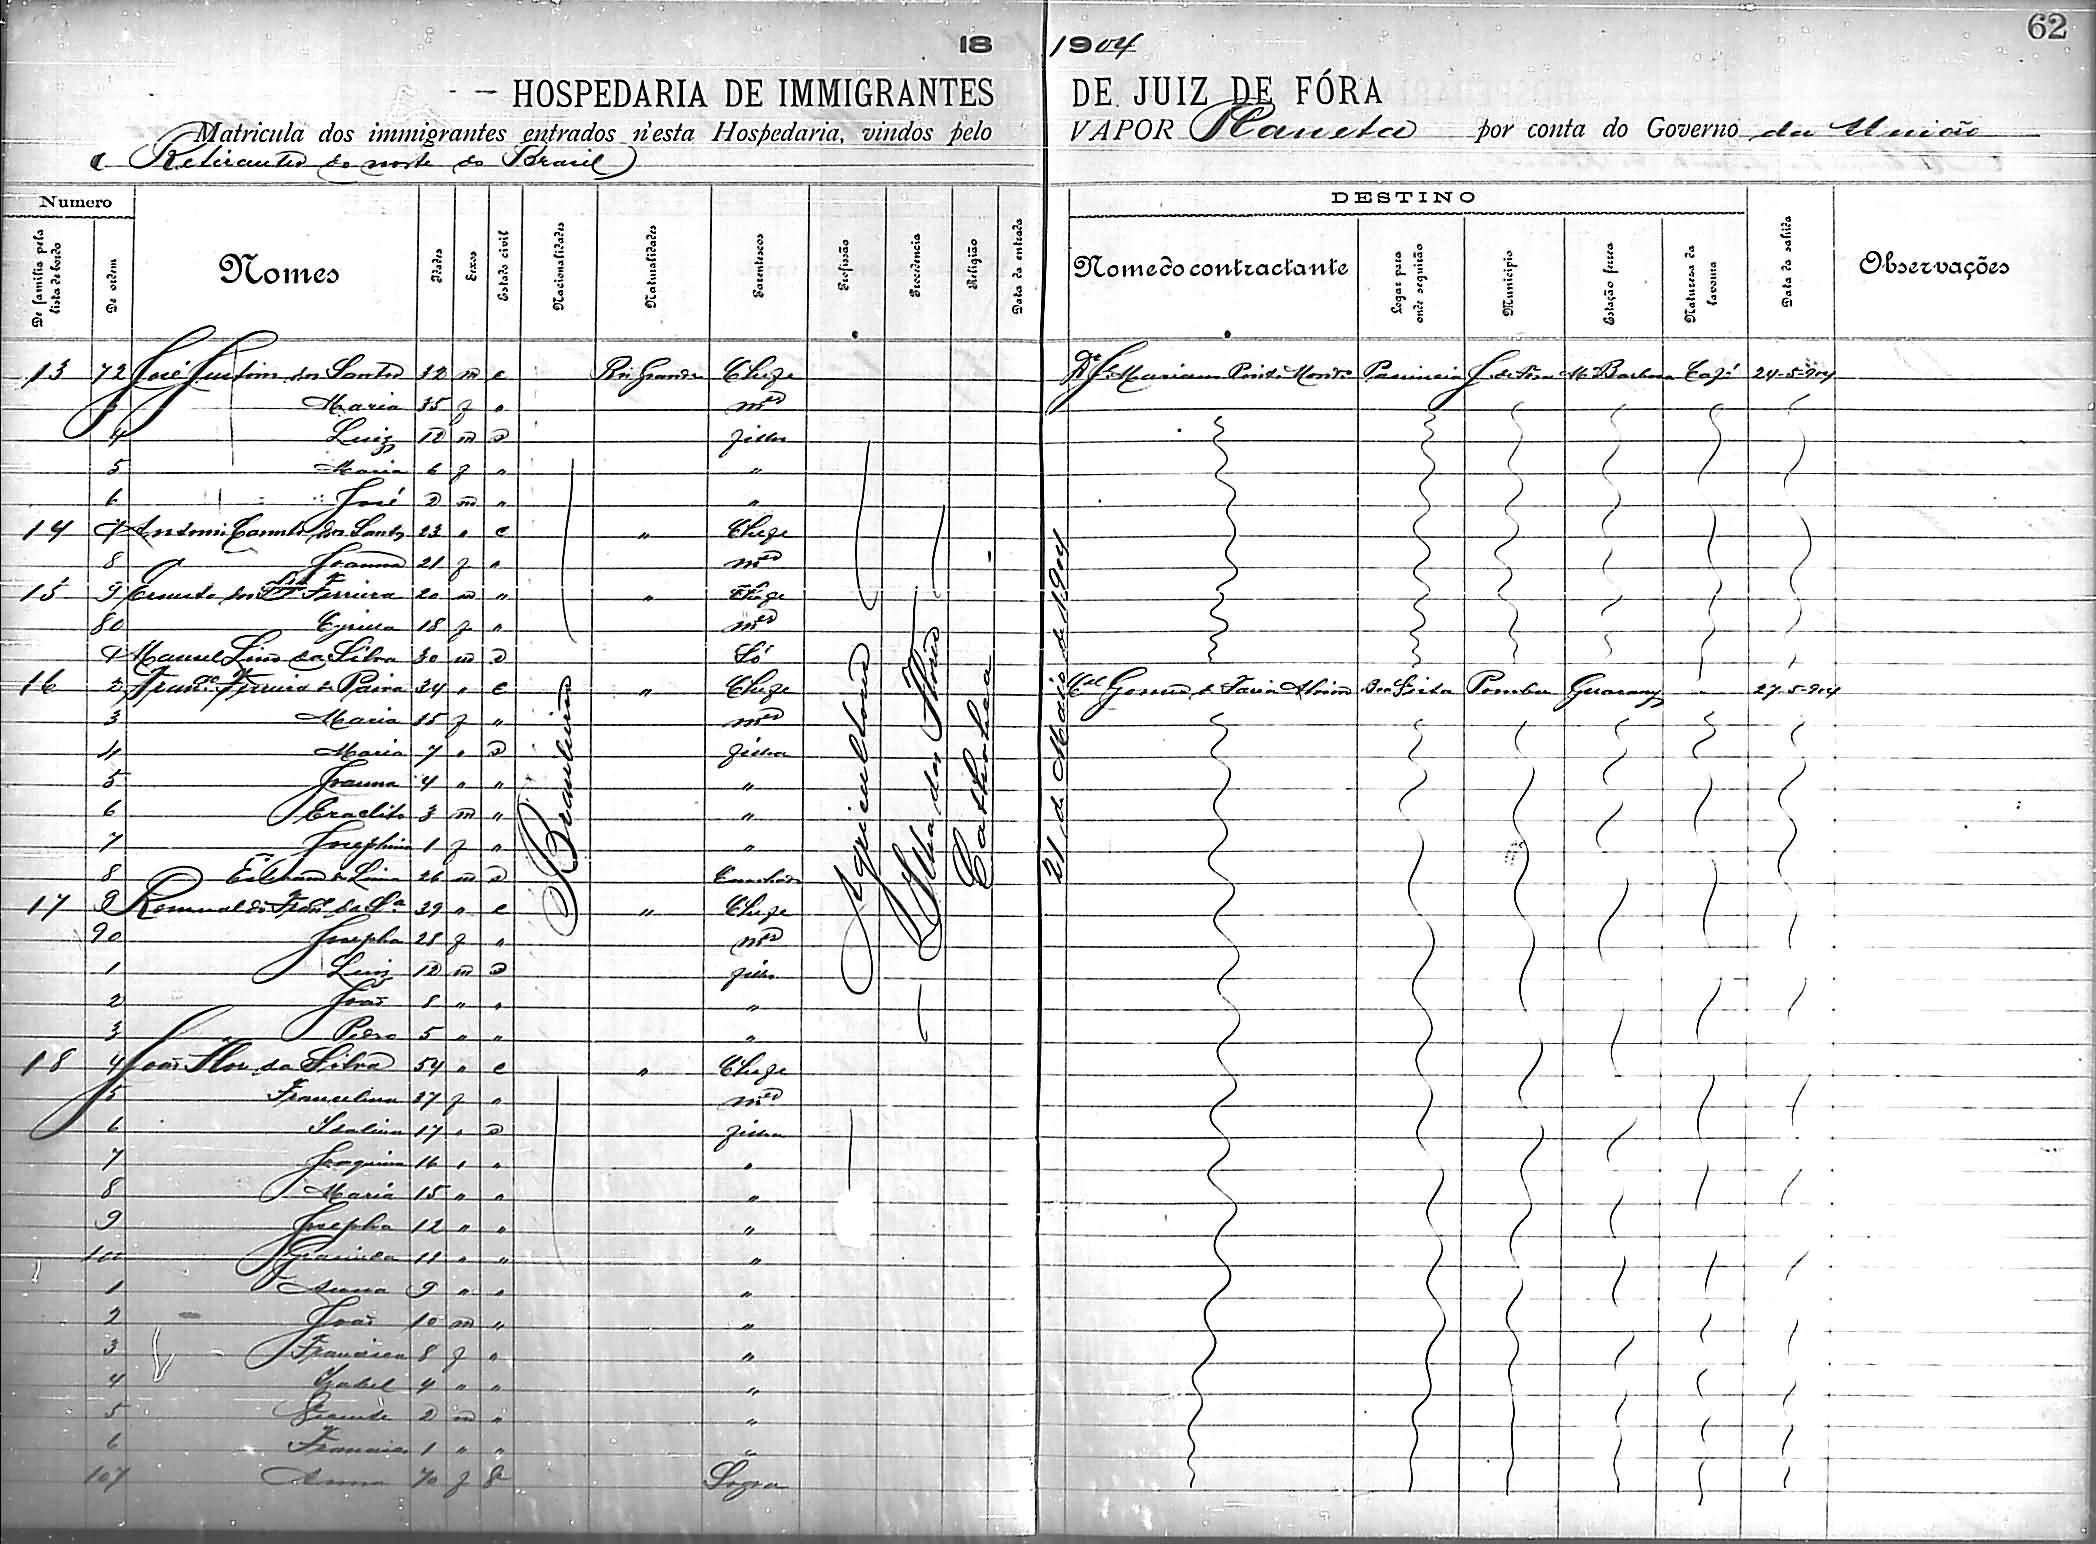 62
18 1904
HOSPEDARIA DE IMMIGRANTES DE JUIZ DE FÓRA
Matricula dos immigrantes entrados n'esta Hospedaria, vindos pelo VAPOR Planeta por conta do Governo da União
(Retirantes do norte do Brasil)
Numero DESTINO
De familia pela lista de bordo De ordem Nomes Idades Sexos Estado civil Nacionalidades Naturalidades Parentescos Profissão Procedencia Religião Data da entrada Nome do contractante Logar para onde seguirão Municipio Estação ferrea Natureza da lavoura Data da sahida Observações
13 72 José dos Santos 32 m c Rio Grande Chefe Café 24-5-904
3 Maria 35 f " mer
4 Luiz 12 m s filho
5 Maria 6 f " "
6 José 2 m " "
14 7 Antonio dos Santos 23 " c " Chefe
8 Joanna 21 f " mer
15 9 Ernesto dos Ferreira 20 m " " Chefe
80 Cyrilla 18 f " mer
1 Manuel Lino da Silva 30 m s Só
16 2 Franco Ferreira de Paiva 34 " c " Chefe Cel Gomes de Faria Pomba Guarany " 27-5-904
3 Maria 35 f " mer
4 Maria 7 " s filha
5 Joanna 4 " " "
6 Eraclito 3 m " "
7 Josephina 1 f " "
8 de Lima 26 m s
17 9 Romualdo Franco da Sa 39 " c " Chefe
90 Josepha 28 f " mer
1 Luiz 12 m s filho
2 João 8 " " "
3 Pedro 5 " " "
18 4 João Flor da Silva 54 " c " Chefe
5 Francelina 37 f " mer
6 Idalina 17 " s filha
7 Joaquina 16 " " "
8 Maria 15 " " "
9 Josepha 12 " " "
100 11 " " "
1 Anna 9 " " "
2 João 10 m " "
3 Francisca 8 f " "
4 Izabel 4 " " "
5 2 m " "
6 1 " " "
107 Anna 70 f Sogra
Brasileiros
Agricultores
Ilha das Flores
Catholica
21 de Maio de 1904